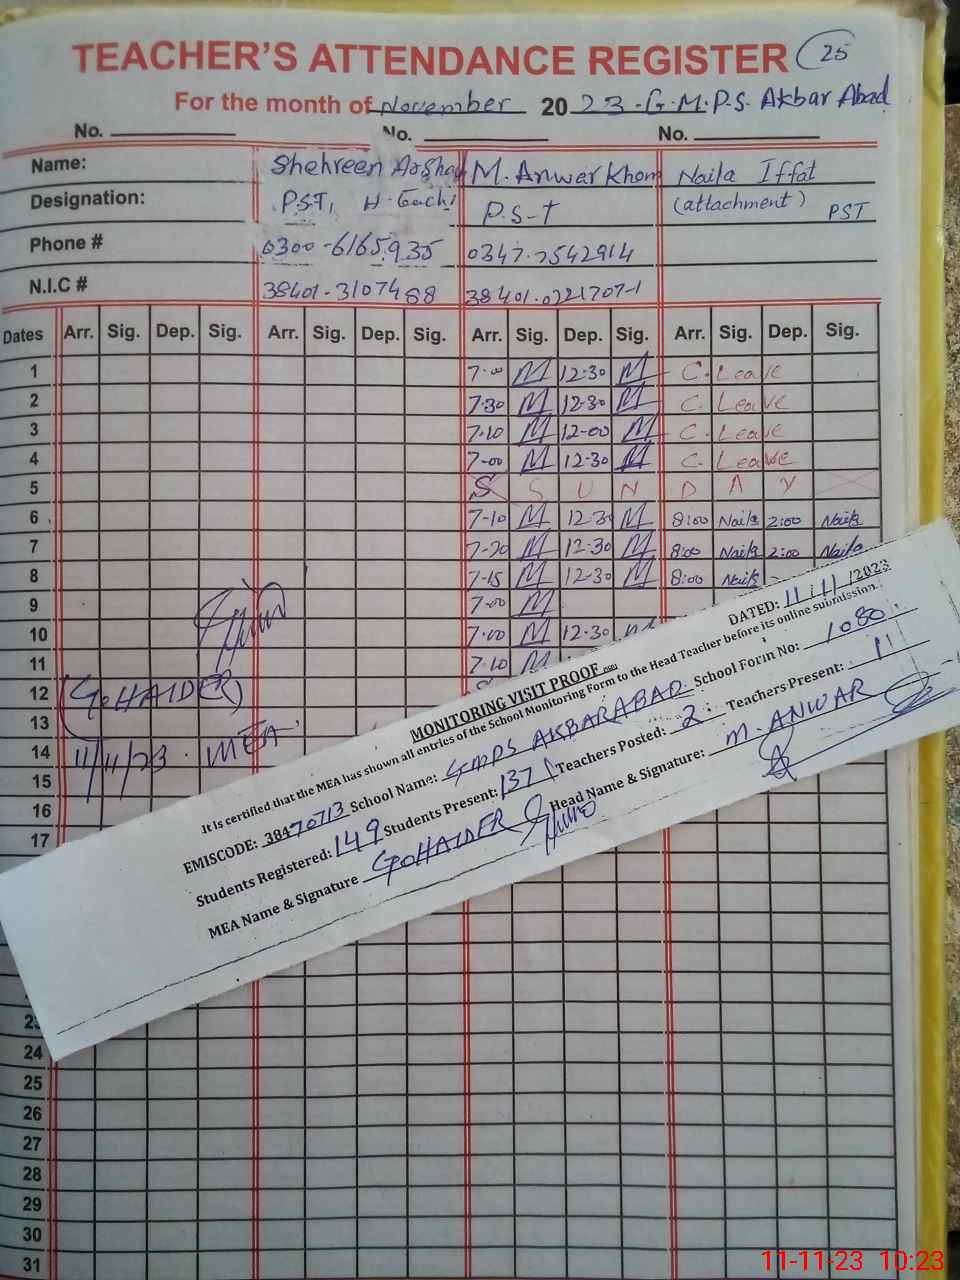 TEACHER'S ATTENDANCE REGISTER 25
For the month of November 2023 G.M.P.S. Akbar Abad
No. No. No.
Name: Shehreen Arshad M. Anwar Khan Naila Iffat
Designation: PST, H. Gachi P.S-T (attachment) PST
Phone # 0300-6165935 0347-7542914
N.I.C # 38401-3107468 38401-0221707-1
Dates Arr. Sig. Dep. Sig. Arr. Sig. Dep. Sig. Arr. Sig. Dep. Sig. Arr. Sig. Dep. Sig.
1 7-00 M 12-30 M C. Leave
2 7-30 M 12-30 M C. Leave
3 7-10 M 12-00 M C. Leave
4 7-00 M 12-30 M C. Leave
5 S S U N D A Y
6 7-10 M 12-30 M 8:00 Naila 2:00 Naila
7 7-20 M 12-30 M 8:00 Naila 2:00 Naila
8 7-15 M 12-30 M 8:00 Naila
9 7-00 M
10 7-00 M 12-30 M
11 7-10 M
12 (G.HAIDER)
13
14 11/11/23 MEA
15
16
17
DATED: 11/11/2023
MONITORING VISIT PROOF
It is certified that the MEA has shown all entries of the School Monitoring Form to the Head Teacher before its online submission.
EMISCODE: 38470713 School Name: GMPS AKBARABAD School Form No: 1080
Students Registered: 149 Students Present: 137 Teachers Posted: 2 Teachers Present: 1
MEA Name & Signature G.HAIDER Head Name & Signature: M. ANWAR
23
24
25
26
27
28
29
30
31
11-11-23 10:23